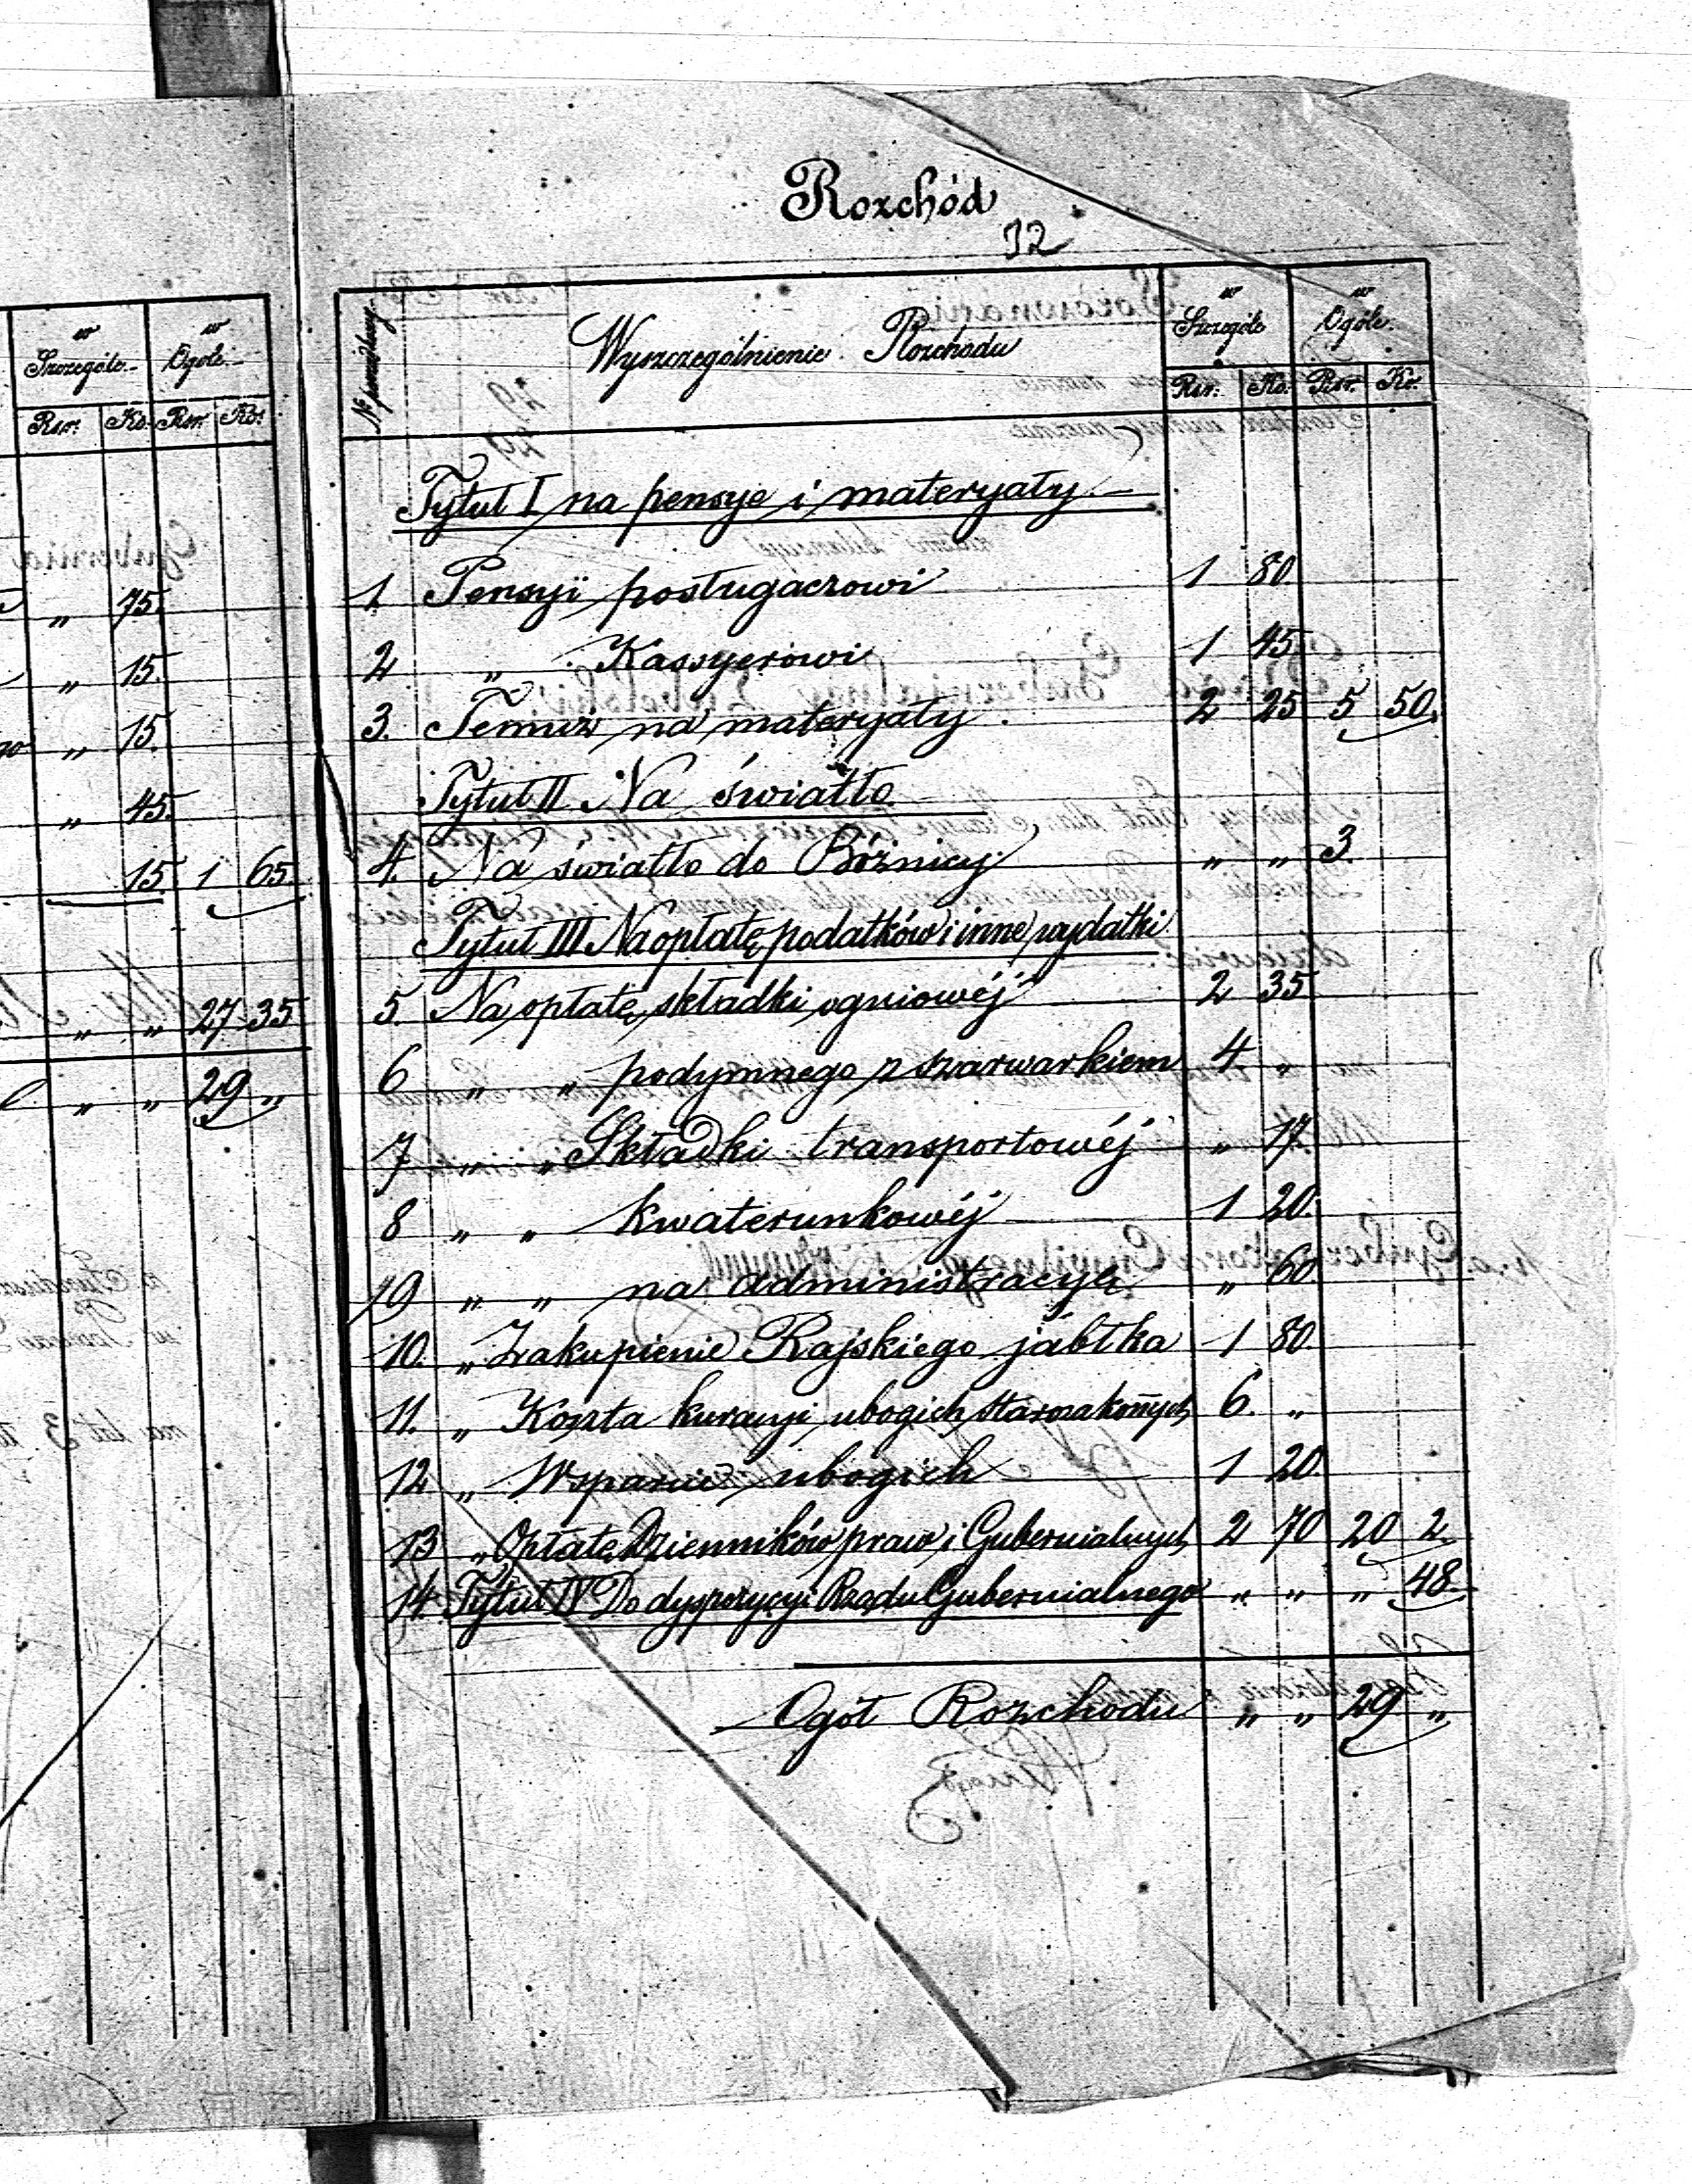 w Szczególe w Ogóle
Rsr: Ko. Rsr. Ko:
" 75.
" 15.
" 15.
" 45.
15. 1 65.
" " 27 35
" " 29 "
Rozchód
12
№ porządkowy. Wyszczególnienie Rozchodu w Szczególe w Ogóle.
Rsr: Ko: Rsr. Ko.
Tytuł I na pensye i materyały.
1. Pensyi posługaczowi 1 80
2 " Kassyerowi 1 45
3. Temuż na materyały. 2 25 5 50.
Tytuł II Na światło
4. Na światło do Bóżnicy. " " 3.
Tytuł III Na opłatę podatków i inne wydatki
5. Na opłatę składki ogniowéj 2 35
6 " " podymnego z szarwarkiem 4 "
7 " " Składki transportowéj " 17.
8 " " kwaterunkowéj 1 20.
9 " " na administracyę " 60
10. " Zakupienie Rajskiego jabłka 1 80.
11. " Koszta kuracyi ubogich starozakonnych 6. "
12 " Wsparcie ubogich 1 20.
13 " Opłatę Dzienników praw i Gubernialnych 2 70 20 2.
14. Tytuł IV Do dyspozycyi Rządu Gubernialnego " " " 48.
Ogół Rozchodu " " 29 "